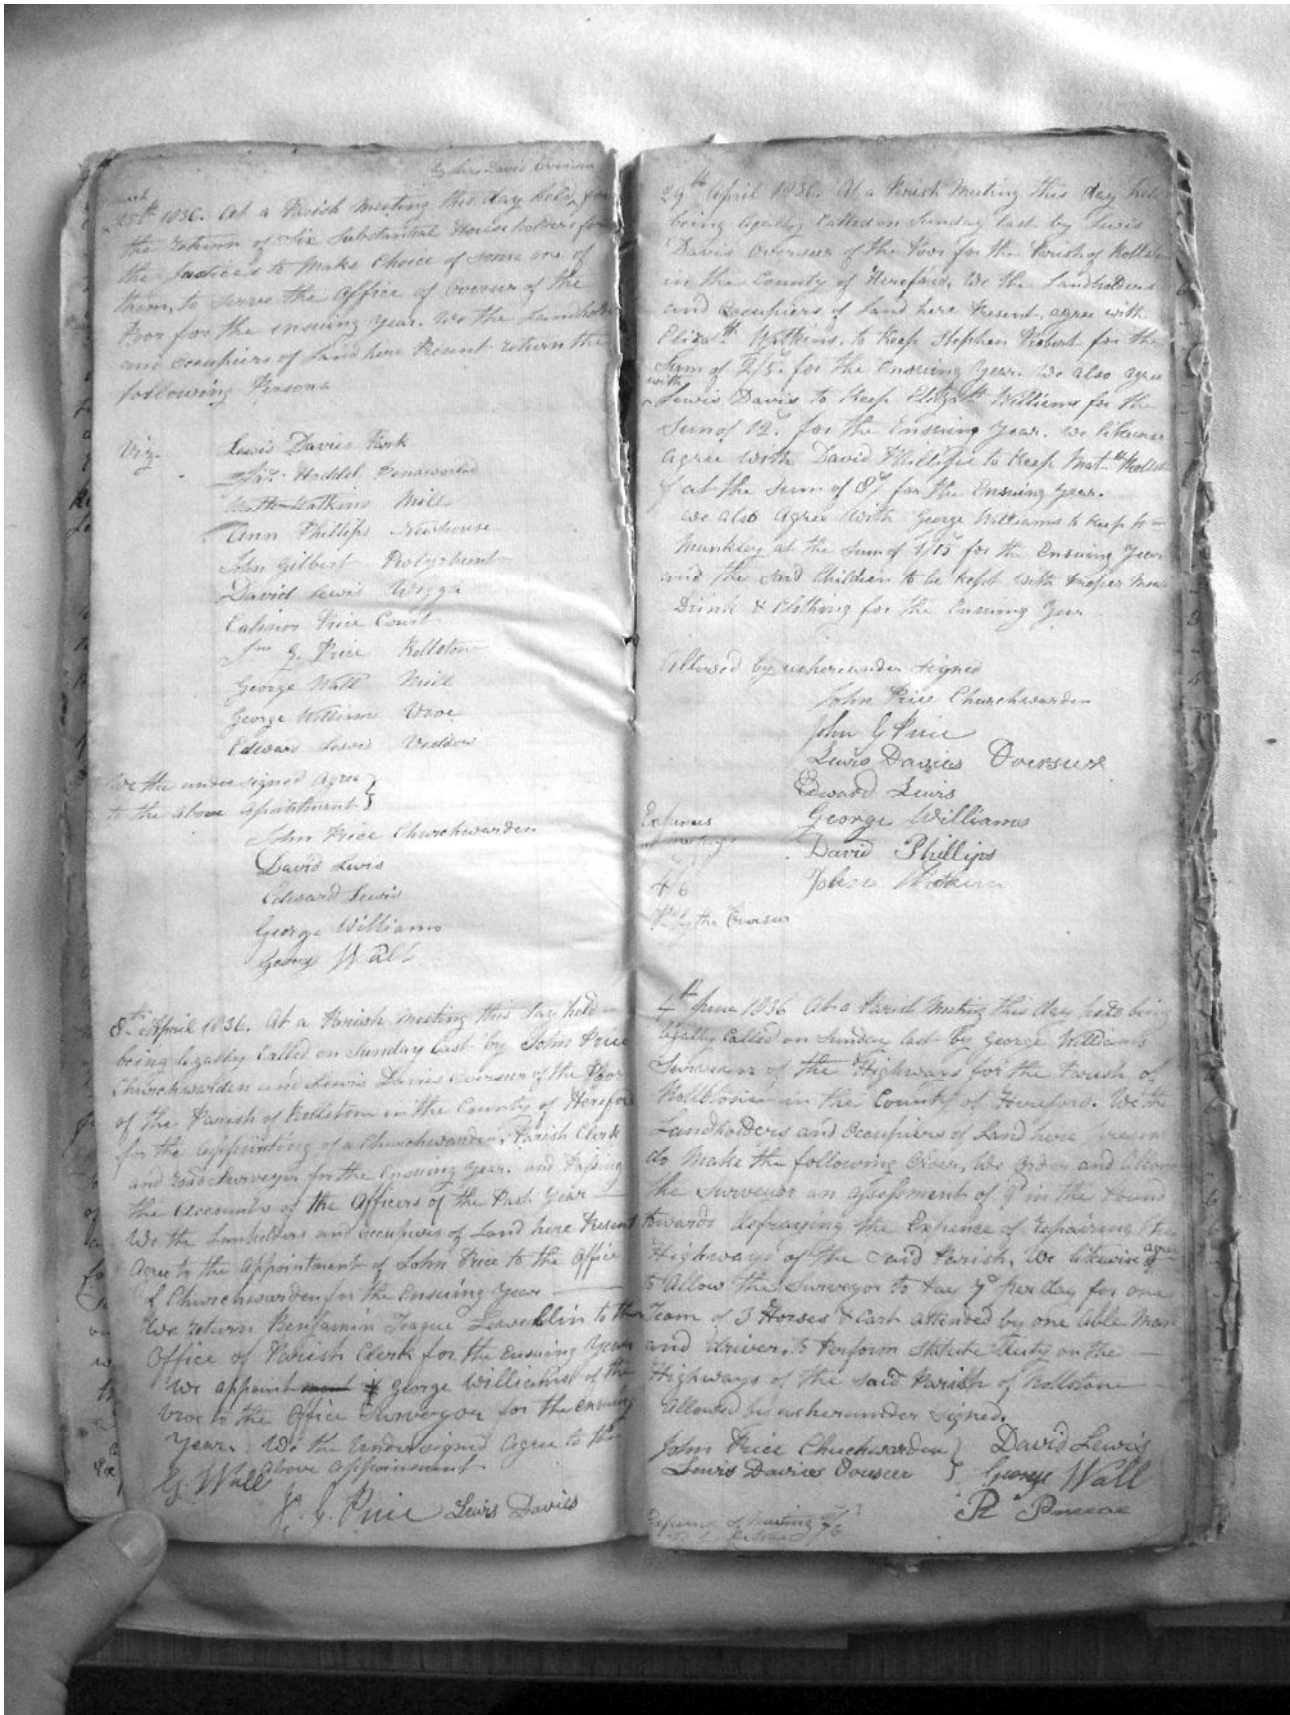 by Lewis Davis Overseer
25th 1836. At a Parish Meeting this day held, for
the return of Six Substantial Householders for
the Justices to Make Choice of some one of
them, to serve the office of overseer of the
Poor for the ensuing year. We the Landholders
and occupiers of Land here Present return the
following Persons
Viz. Lewis Davies Park
Hoddel
Watkins Mill
Ann Phillips Newhouse
John Gilbert
David Lewis Wigga
Price Court
Jno G. Price Rollstone
George Wall Mill
George Williams Vroe
Edward Lewis
We the undersigned Agree
to the above Apointment
John Price Churchwarden
David Lewis
Edward Lewis
George Williams
George Wall
8th April 1836. At a Parish Meeting this day held
being legally Called on Sunday last by John Price
Churchwarden and Lewis Davies Overseer of the Poor
of the Parish of Rollstone in the County of Hereford
for the appointing of a Churchwarden, Parish Clerk
and road Surveyor for the Ensuing Year. and Passing
the Accounts of the Officers of the Past Year
We the Landholders and occupiers of Land here Present
Agree to the appointment of John Price to the Office
of Churchwarden for the Ensuing Year
We return Benjamin Teague Lewellin to the
Office of Parish Clerk for the Ensuing Year
We appoint George Williams of the
Vroe to the Office Surveyor for the ensuing
Year. We the Undersigned Agree to the
above appoinment.
G. Wall
J. G. Price Lewis Davies
29th April 1836. At a Parish Meeting this day held
being legally Called on Sunday last by Lewis
Davis Overseer of the Poor for the Parish of Rollstone
in the County of Hereford, We the Landholders
and Occupiers of Land here Present, agree with
Elizath Watkins, to Keep Stephen Probert for the
Sum of 2/5. for the Ensuing Year. We also agree
with
Lewis Davis to Keep Elizath Williams for the
Sum of 12. for the Ensuing Year. We likewise
agree with David Phillips to Keep
at the Sum of for the Ensuing Year.
We also Agree with George Williams to keep
Munkley at the Sum of 1/15 for the Ensuing Year
and the said Children to be kept with proper Meat
Drink & Clothing for the Ensuing Year
Allowed by us hereunder signed
John Price Churchwarden
John G Price
Lewis Davies Overseer
Edward Lewis
George Williams
David Phillips
Watkins
Expences
4/6
Pd by the Overseer
4th June 1836 At a Parish Meeting this day held being
legally Called on Sunday last by George Williams
Surveyor of the Highways for the Parish of
Rollstone in the County of Hereford. We the
Landholders and Occupiers of Land here Present
do Make the following Order, We Order and Allow
the Surveyor an assessment of in the Pound
towards defraying the Expence of repairing the
Highways of the said Parish, We likewise agree
to Allow the Surveyor to Pay 7s per day for one
Team of 3 Horses & Cart attended by one Able Man
and driver, to Perform Statute Duty on the
Highways of the said Parish of Rollstone
Allowed by us hereunder signed.
John Price Chuchwarden David Lewis
Lewis Davies Overseer George Wall
Expence of meeting